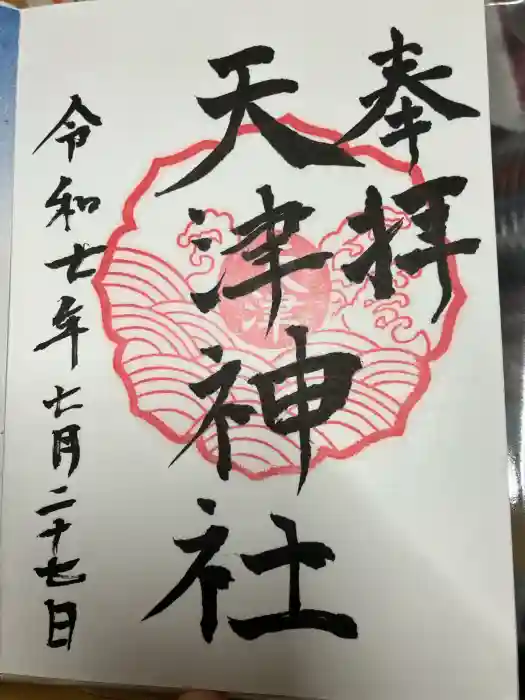 奉拝
天津神社
令和七年七月二十七日
天津